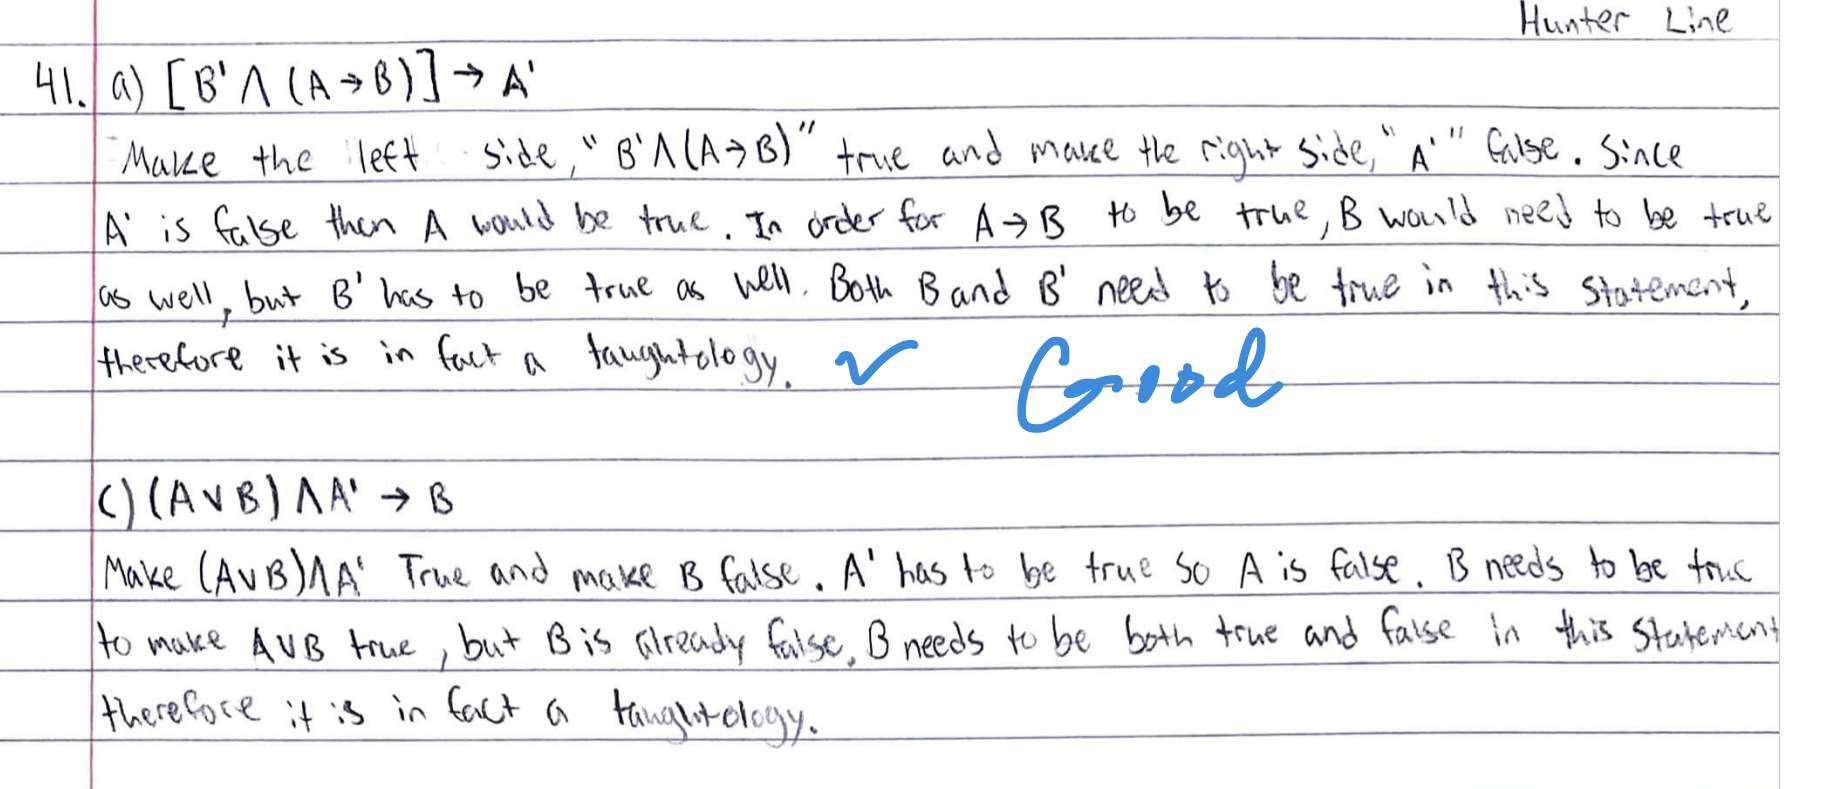 Hunter Line
41. a) [B' ∧ (A → B)] → A'
Make the left side, "B' ∧ (A → B)" true and make the right side, "A'" false. Since
A' is false then A would be true. In order for A → B to be true, B would need to be true
as well, but B' has to be true as well. Both B and B' need to be true in this statement,
therefore it is in fact a taughtology. ✓ Good
C) (A ∨ B) ∧ A' → B
Make (A ∨ B) ∧ A' True and make B false. A' has to be true so A is false. B needs to be true
to make A ∨ B true, but B is already false. B needs to be both true and false in this statement
therefore it is in fact a taughtology.